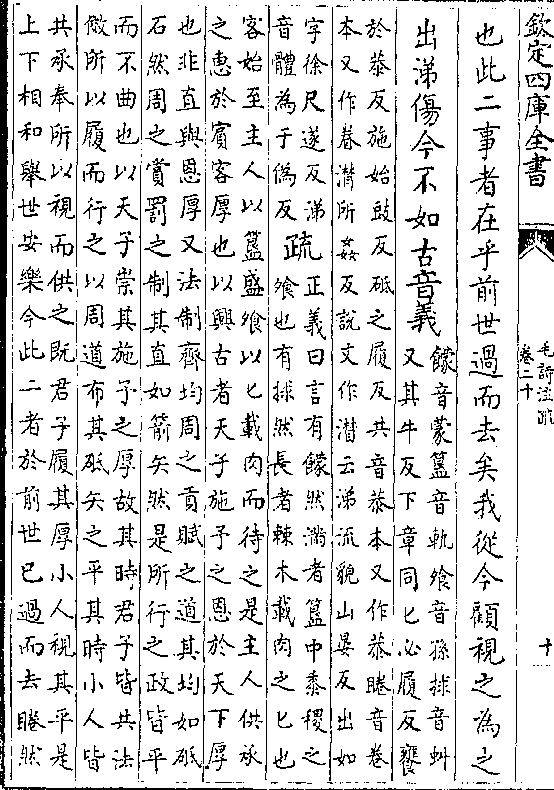 欽定四庫全書
毛詩注疏
卷二十
十
也此二事者在乎前世過而去矣我從今顧視之為之
出涕傷今不如古音義
饛音蒙簋音軌飱音孫捄音虯
又其牛反下章同匕必履反饔
於恭反施始豉反砥之履反共音恭本又作恭睠音卷
本又作眷潸所姦反說文作潸云涕流貌山晏反出如
字徐尺遂反涕
音體為于偽反
疏
正義曰言有饛然滿者簋中黍稷之
飱也有捄然長者棘木載肉之匕也
客始至主人以簋盛飱以匕載肉而待之是主人供承
之惠於賓客厚也以興古者天子施予之恩於天下厚
也非直與恩厚又法制齊均周之貢賦之道其均如砥
石然周之賞罰之制其直如箭矢然是所行之政皆平
而不曲也以天子崇其施予之厚故其時君子皆共法
傚所以履而行之以周道布其砥矢之平其時小人皆
共承奉所以視而供之既君子履其厚小人視其平是
上下相和舉世安樂今此二者於前世已過而去睠然